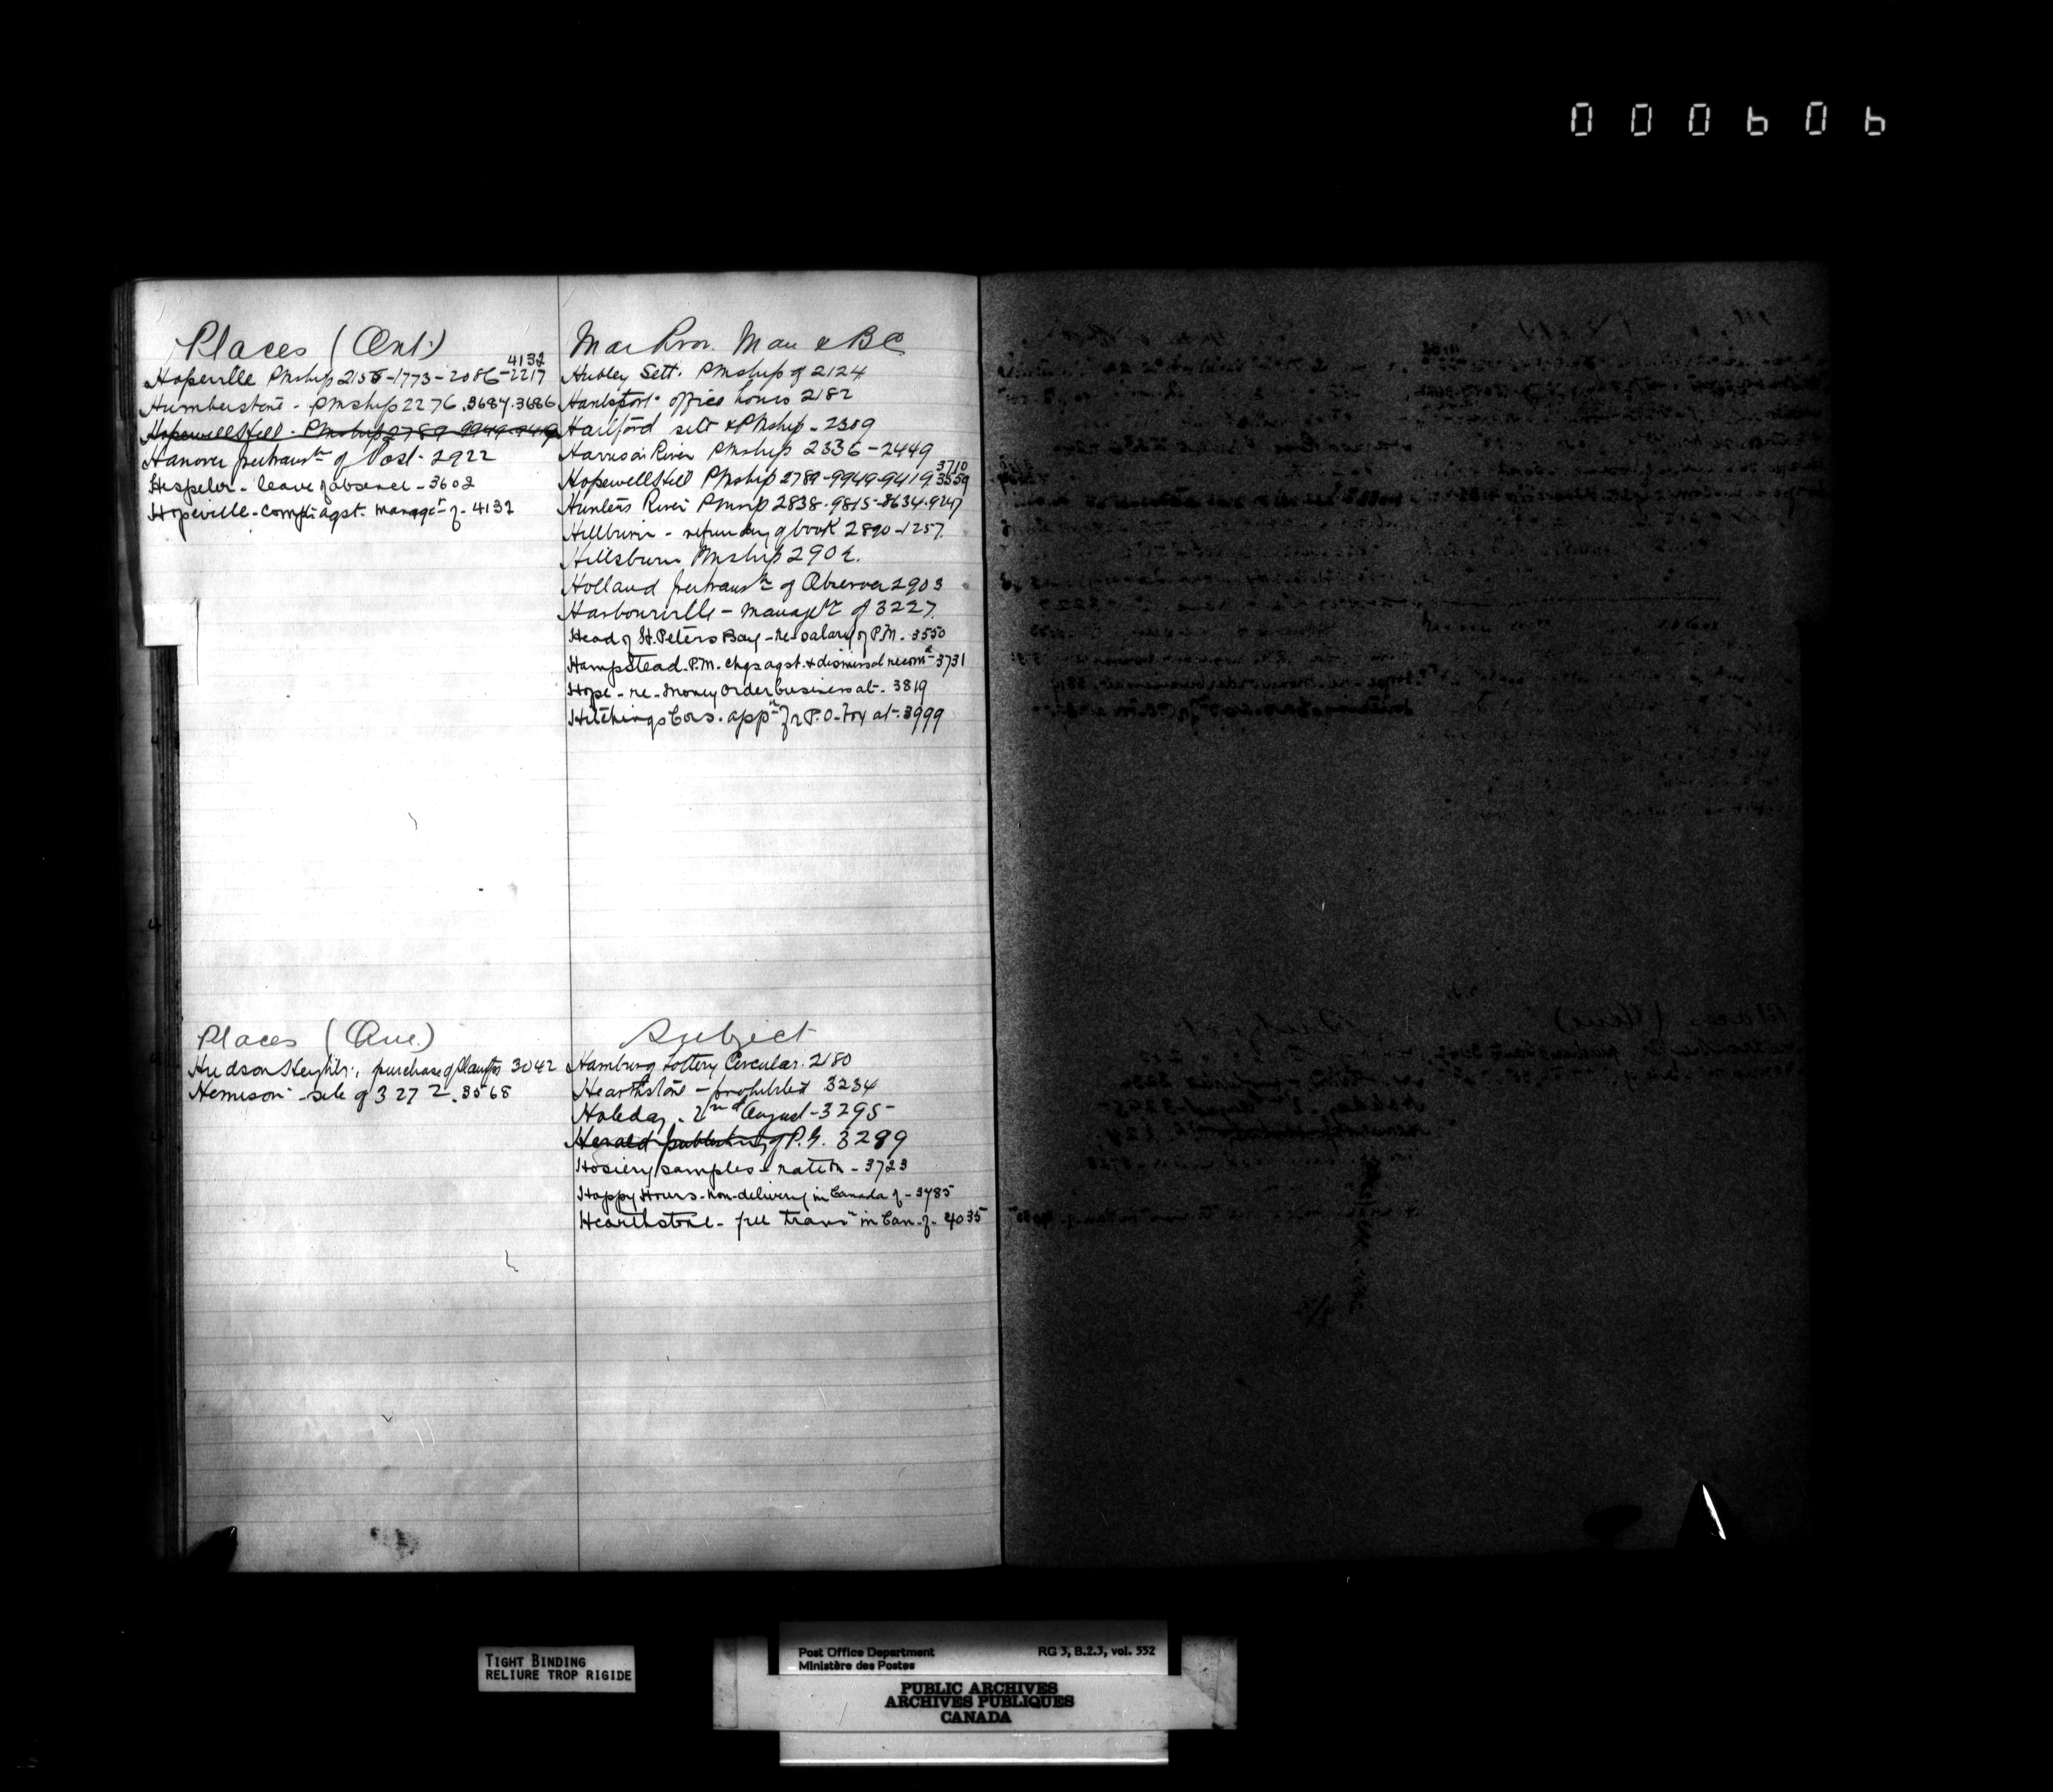 000606
Places (Ont.)
4132
Hopeville PMship 2158-1773-2086-2217
Humberstone - PMship 2276.3687.3686
Hopewell Hill - PMship 2789-9949-9419
Hanover free trans^n of Post - 2922
Hespeler - leave of absence - 3602
Hopeville - Complt agst. manag^t of - 4132
Mar Prov. Man & BC
Hubley Sett. PMship of 2124
Hantsport office hours 2182
Hartford sett & PMship - 2309
Harrison River PMship 2336-2449
3710
Hopewell Hill PMship 2789-9949-9419.3559
Hunters River PMship 2838-9815-8634.9247
Hillburn - refunding of book 2890-1257.
Hillsburn PMship 2902.
Holland free trans^n of Observer 2903
Harbourville - manage^t of 3227.
Head of St. Peters Bay - re-salary of P.M. - 3550
Hampstead. P.M. chgs agst. & dismissal recom^d 3731
Hope - re - Money Order business at - 3819
Hitchings Cors. app^n for P.O. - Foy at - 3999
Places (Que.)
Hudson Heights, purchase of 3042
Hemison - site of 3272. 3568
Subject
Hamburg Lottery Circular. 2180
Hearthstone - prohibited 3234
Holiday. 2nd August - 3295
Herald publishing of P.G. 3289
Hosiery samples - rate on - 3723
Happy Hours - non-delivery in Canada of - 3785
Hearthstone - free trans^n in Can. of - 4035
TIGHT BINDING
RELIURE TROP RIGIDE
Post Office Department RG 3, B.2.3, vol. 552
Ministère des Postes
PUBLIC ARCHIVES
ARCHIVES PUBLIQUES
CANADA